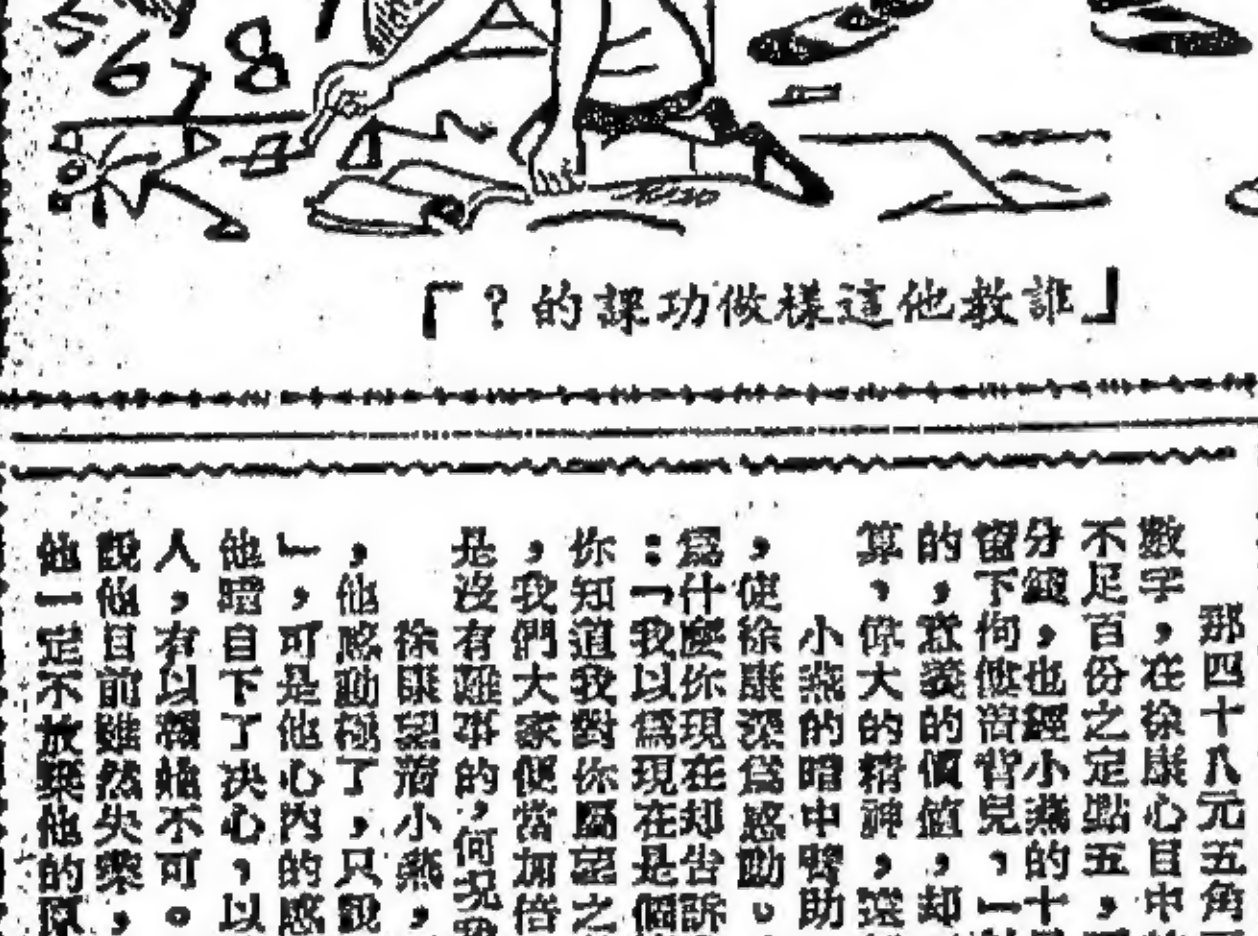 5
6 7 8
「誰教他這樣做功課的?」
那四十八元五角
數字，在徐康心目中
不足百份之定點五，
分鐘，也經小燕的十
留下佝僂着背兒，一
的，意義的價值，却
算，偉大的精神，
小燕的暗中幫助
，使徐康深爲感動。
爲什麼你現在却告訴
：「我以爲現在是個
你知道我對你屬望之
，我們大家便當加倍
是沒有難事的，何况我
徐康望着小燕，
，他感動極了，只說
」，可是他心內的感
他暗自下了决心，以
人，有以報她不可。
說他目前雖然失業，
他一定不放棄他的原